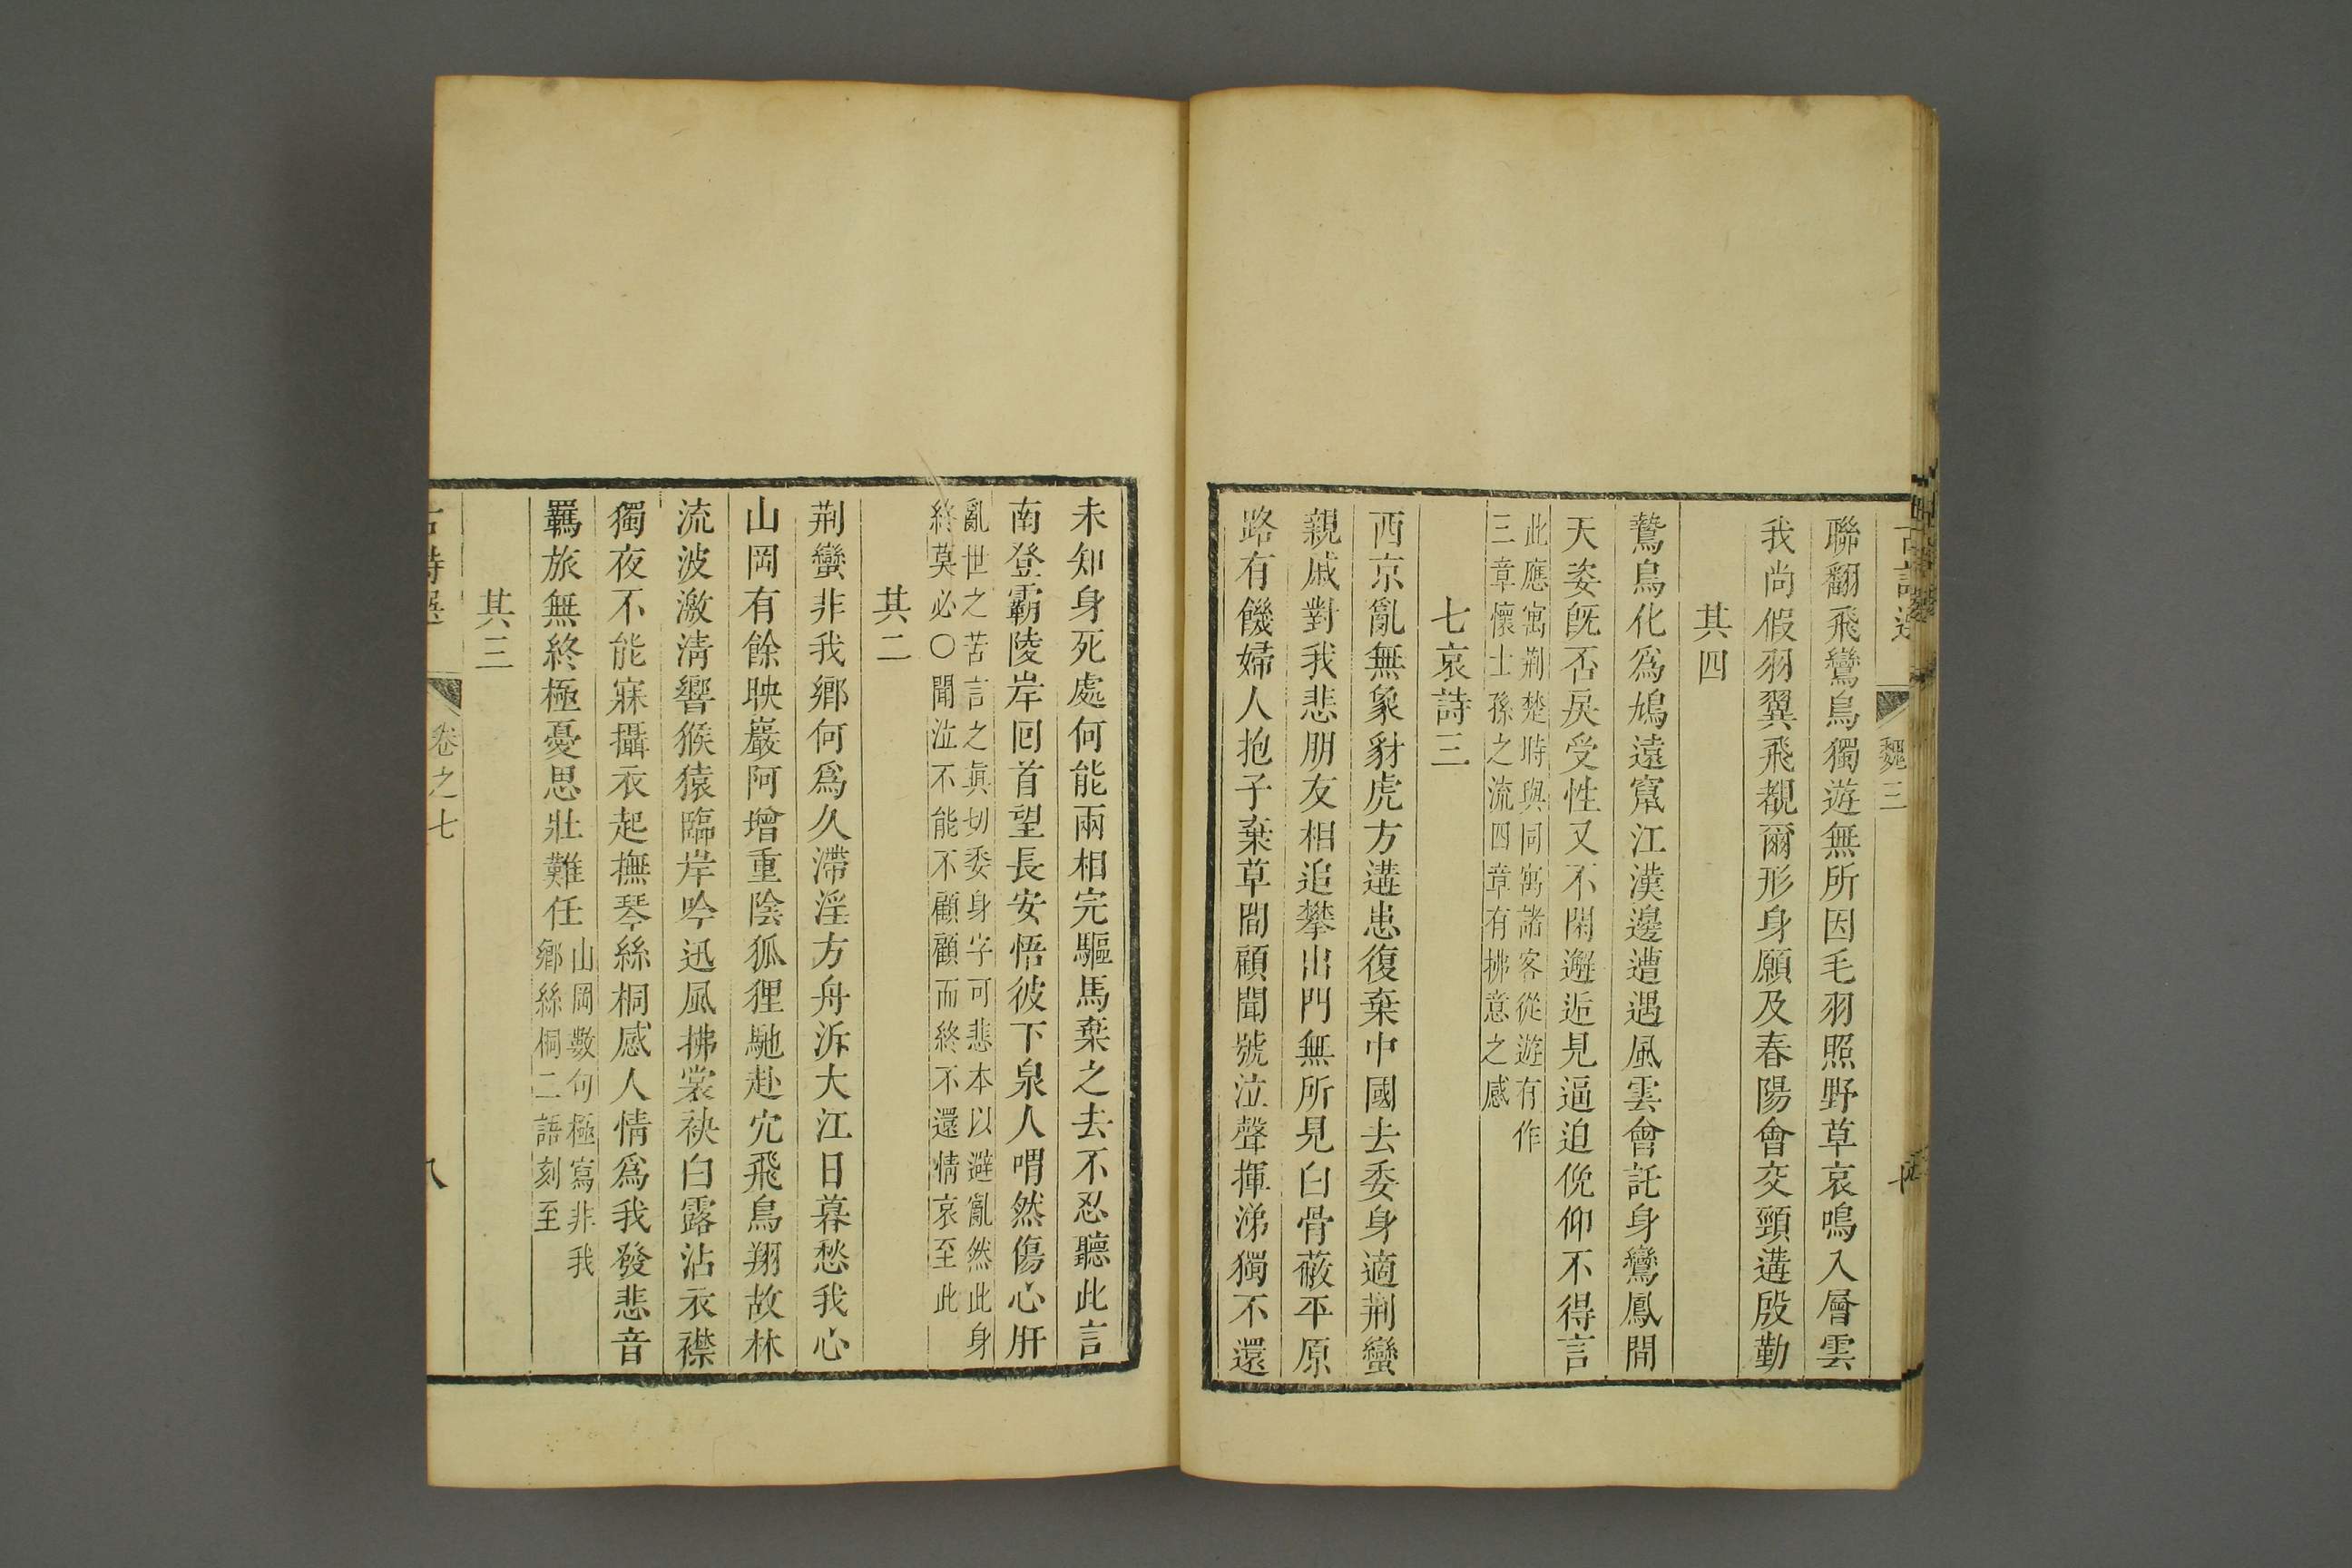 魏三
聯翻飛鸞鳥獨遊無所因毛羽照野草哀鳴入層雲
我尚假羽翼飛覩爾形身願及春陽會交頸遘殷勤
其四
鷙鳥化爲鳩遠竄江漢邊遭遇風雲會託身鸞鳳間
天姿旣否戾受性又不閑邂逅見逼迫俛仰不得言
此應寓荆楚時與同寓諸客從遊有作
三章懷士孫之流四章有拂意之感
七哀詩三
西京亂無象豺虎方遘患復棄中國去委身適荆蠻
親戚對我悲朋友相追攀出門無所見白骨蔽平原
路有饑婦人抱子棄草間顧聞號泣聲揮涕獨不還
未知身死處何能兩相完驅馬棄之去不忍聽此言
南登霸陵岸囘首望長安悟彼下泉人喟然傷心肝
亂世之苦言之眞切委身字可悲本以避亂然此身
終莫必〇聞泣不能不顧顧而終不還情哀至此
其二
荆蠻非我鄉何爲久滯淫方舟泝大江日暮愁我心
山岡有餘映巖阿增重陰狐狸馳赴穴飛鳥翔故林
流波激淸響猴猿臨岸吟迅風拂裳袂白露沾衣襟
獨夜不能寐攝衣起撫琴絲桐感人情爲我發悲音
羈旅無終極憂思壯難任
山岡數句極寫非我
鄉絲桐二語刻至
其三
古詩選 卷之七 八